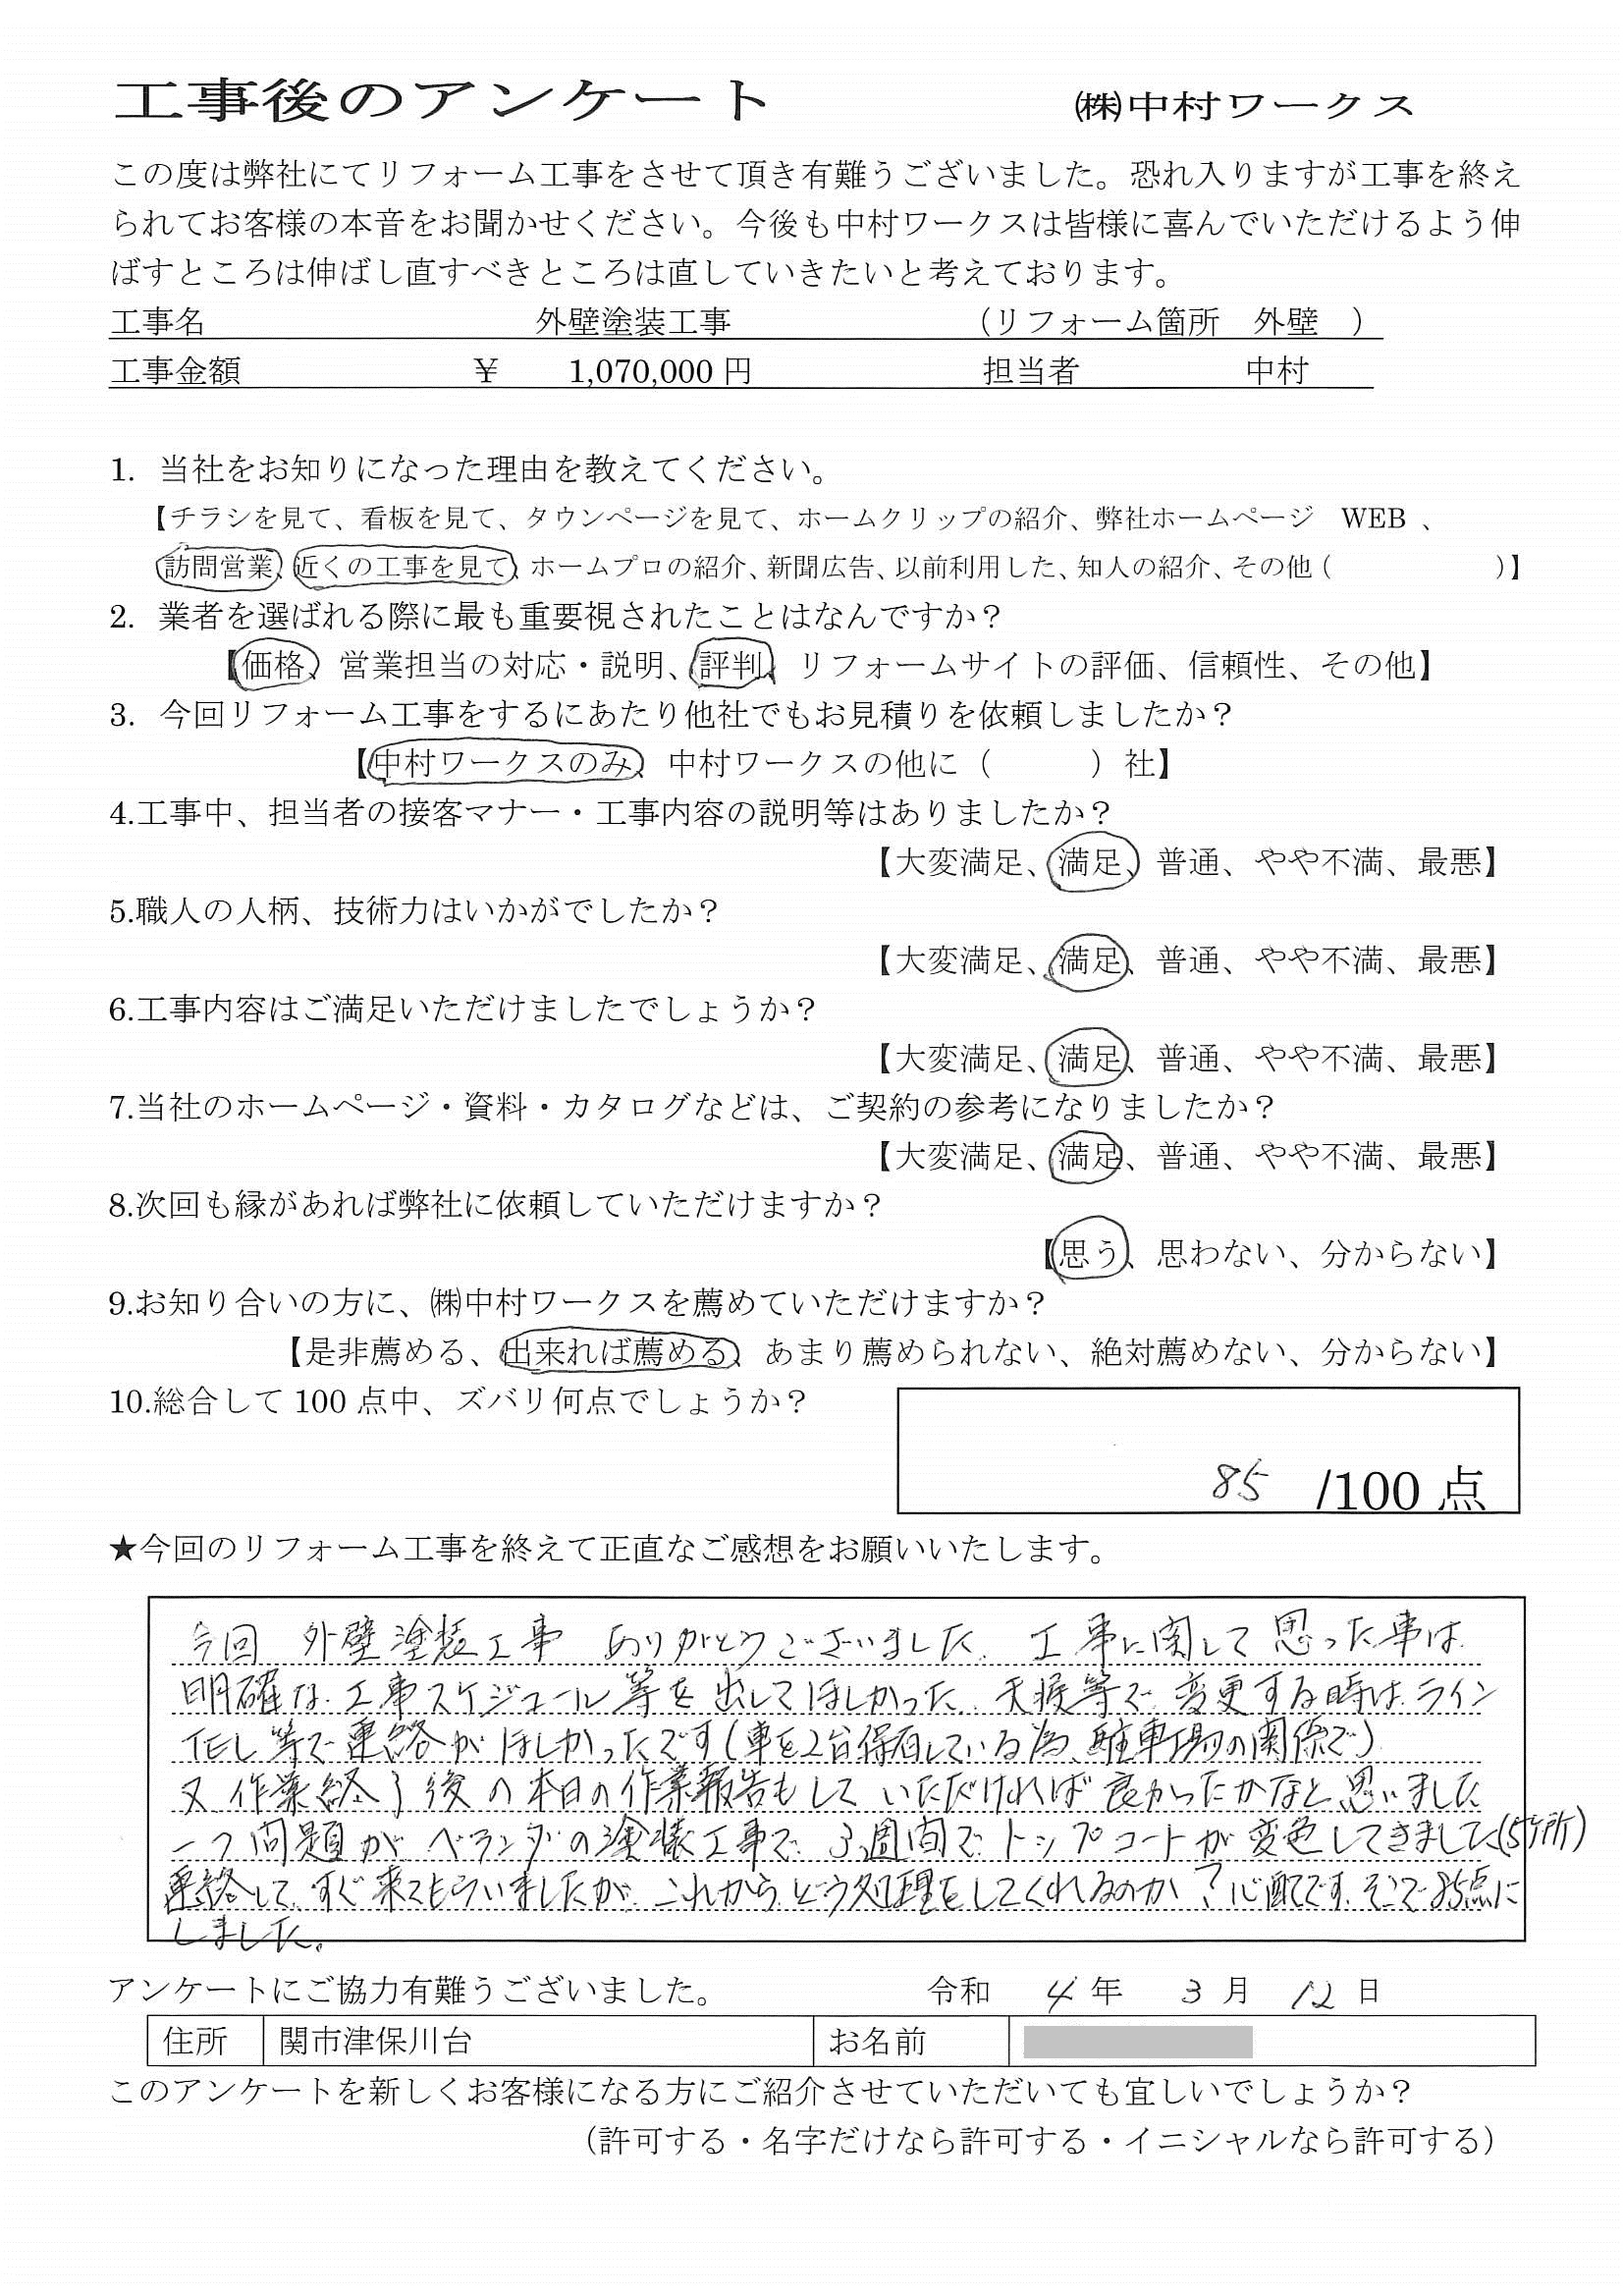 工事後のアンケート ㈱中村ワークス
この度は弊社にてリフォーム工事をさせて頂き有難うございました。恐れ入りますが工事を終え
られてお客様の本音をお聞かせください。今後も中村ワークスは皆様に喜んでいただけるよう伸
ばすところは伸ばし直すべきところは直していきたいと考えております。
工事名 外壁塗装工事 (リフォーム箇所 外壁 )
工事金額 ¥ 1,070,000 円 担当者 中村
1. 当社をお知りになった理由を教えてください。
【チラシを見て、看板を見て、タウンページを見て、ホームクリップの紹介、弊社ホームページ WEB 、
訪問営業、近くの工事を見て、ホームプロの紹介、新聞広告、以前利用した、知人の紹介、その他 ( )】
2. 業者を選ばれる際に最も重要視されたことはなんですか？
【価格、営業担当の対応・説明、評判、リフォームサイトの評価、信頼性、その他】
3. 今回リフォーム工事をするにあたり他社でもお見積りを依頼しましたか？
【中村ワークスのみ、中村ワークスの他に（ ）社】
4.工事中、担当者の接客マナー・工事内容の説明等はありましたか？
【大変満足、満足、普通、やや不満、最悪】
5.職人の人柄、技術力はいかがでしたか？
【大変満足、満足、普通、やや不満、最悪】
6.工事内容はご満足いただけましたでしょうか？
【大変満足、満足、普通、やや不満、最悪】
7.当社のホームページ・資料・カタログなどは、ご契約の参考になりましたか？
【大変満足、満足、普通、やや不満、最悪】
8.次回も縁があれば弊社に依頼していただけますか？
【思う、思わない、分からない】
9.お知り合いの方に、㈱中村ワークスを薦めていただけますか？
【是非薦める、出来れば薦める、あまり薦められない、絶対薦めない、分からない】
10.総合して 100 点中、ズバリ何点でしょうか？
85 /100 点
★今回のリフォーム工事を終えて正直なご感想をお願いいたします。
今回 外壁塗装工事 ありがとうございました. 工事に関して思った事は
明確な工事スケジュール等を出してほしかった. 天候等で変更する時は、ライン
TEL等で連絡がほしかったです(車を2台保有している為、駐車場の関係で)
又 作業終了後の本日の作業報告もして いただければ良かったかなと思いました
一つ問題が ベランダの塗装工事で 3週間で トップコートが変色してきました(5ヶ所)
連絡して、すぐ来てもらいましたが、これから、どう処理をしてくれるのか？心配です. そこで85点に
しました。
アンケートにご協力有難うございました。 令和 4 年 3 月 12 日
住所 関市津保川台 お名前
このアンケートを新しくお客様になる方にご紹介させていただいても宜しいでしょうか？
（許可する・名字だけなら許可する・イニシャルなら許可する）